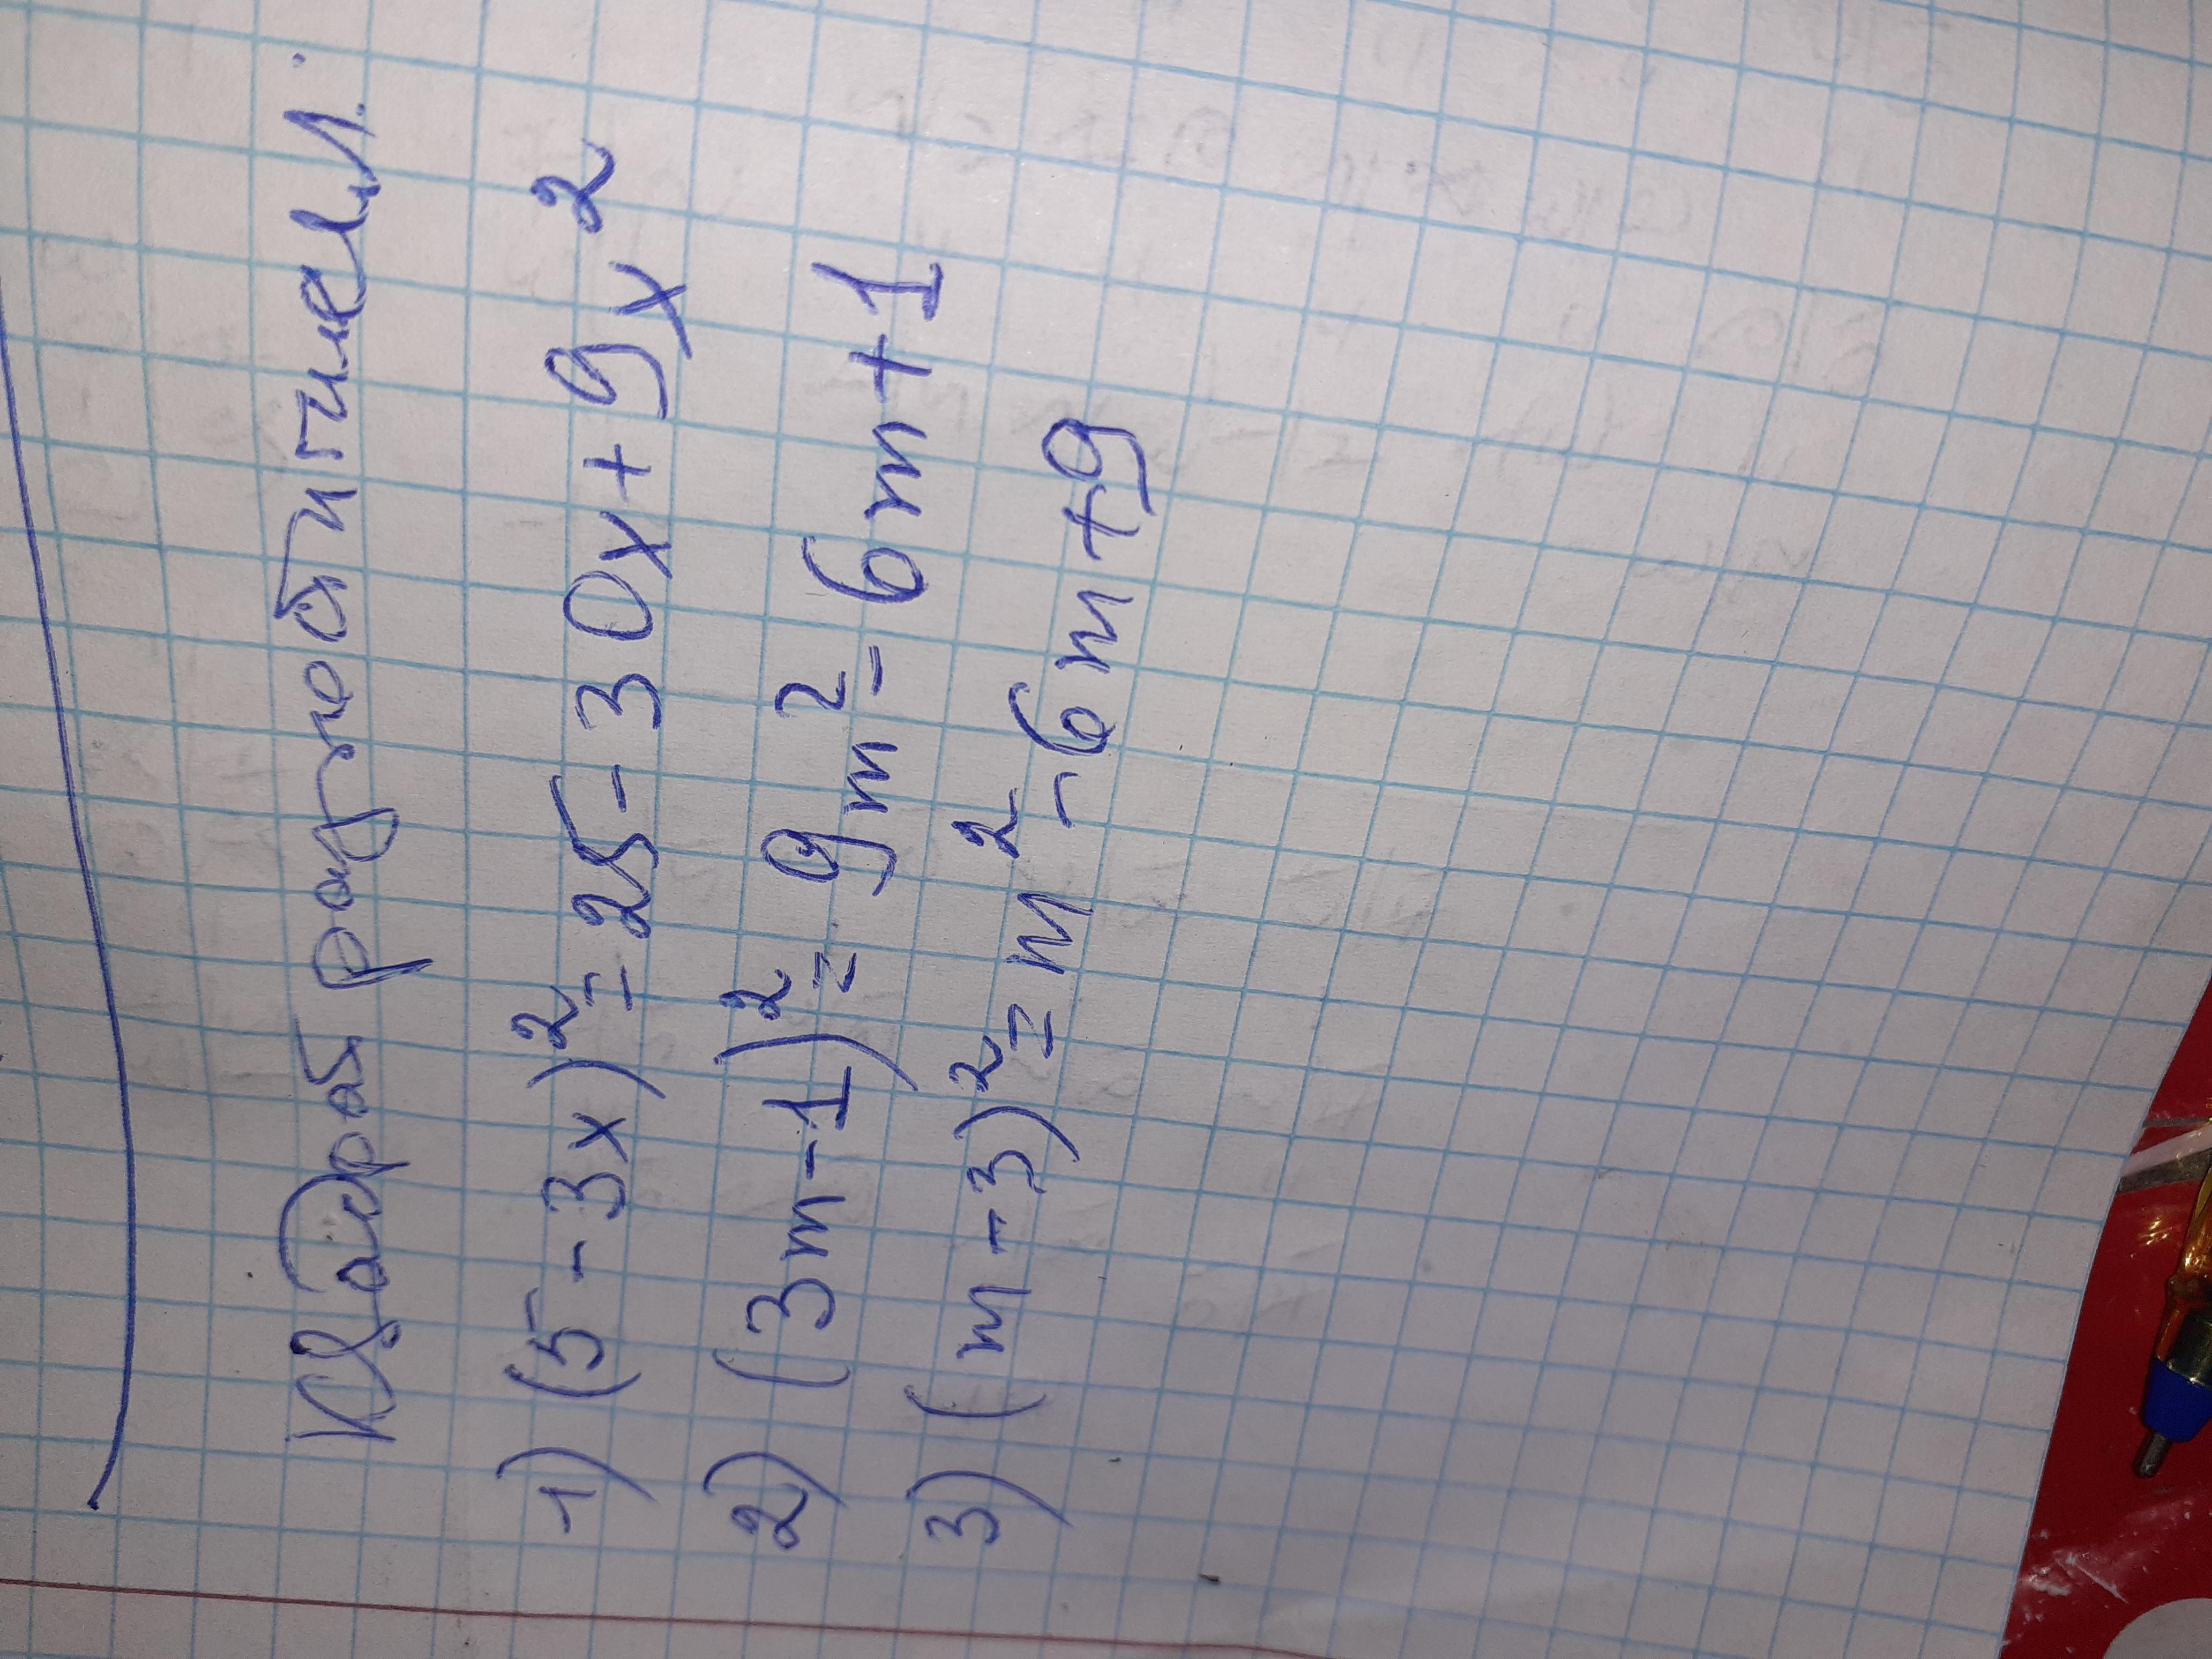 Квадрат разности
1) (5-3x)²=25-30x+9x²
2) (3m-1)²=9m²-6m+1
3) (m-3)²=m²-6m+9